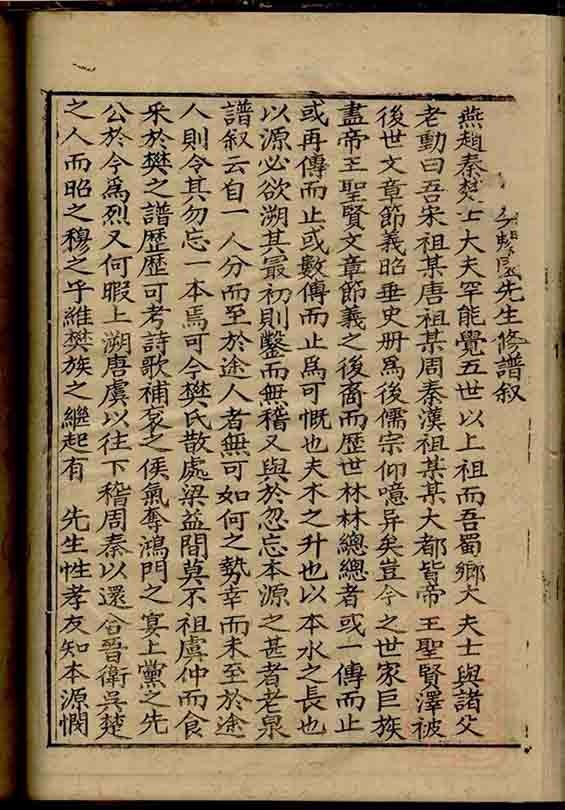 先生修譜叙
燕趙秦楚士大夫罕能覺五世以上祖而吾蜀鄉大夫士與諸父
老動曰吾宋祖某唐祖某周秦漢祖某某大都皆帝王聖賢澤被
後世文章節義昭垂史册爲後儒宗仰噫异矣豈今之世家巨族
盡帝王聖賢文章節義之後裔而歷世林林總總者或一傳而止
或再傳而止或數傳而止爲可慨也夫木之升也以本水之長也
以源必欲溯其最初則鑿而無稽又與於忽忘本源之甚者老泉
譜叙云自一人分而至於途人者無可如何之勢幸而未至於途
人則令其勿忘一本焉可今樊氏散處梁益間莫不祖虞仲而食
采於樊之譜歷歷可考詩歌補衮之侯氣奪鴻門之宴上黨之先
公於今爲烈又何暇上溯唐虞以往下稽周秦以還合晉衛吳楚
之人而昭之穆之乎維樊族之繼起有　先生性孝友知本源憫